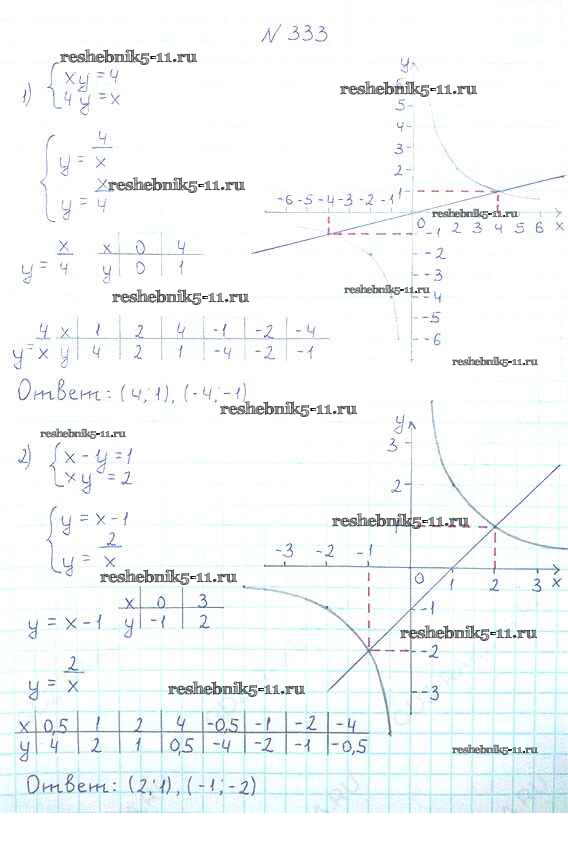 N 333
reshebnik5-11.ru
1) { xy = 4
4y = x
reshebnik5-11.ru
{ y = 4/x
y = x/4
reshebnik5-11.ru
y = x/4
x | 0 | 4
y | 0 | 1
reshebnik5-11.ru
y = 4/x
x | 1 | 2 | 4 | -1 | -2 | -4
y | 4 | 2 | 1 | -4 | -2 | -1
y
6
5
4
3
2
1
-6 -5 -4 -3 -2 -1
0 1 2 3 4 5 6 x
reshebnik5-11.ru
-1
-2
-3
reshebnik5-11.ru
-4
-5
-6
reshebnik5-11.ru
Ответ: (4; 1), (-4; -1)
reshebnik5-11.ru
reshebnik5-11.ru
2) { x - y = 1
xy = 2
{ y = x - 1
y = 2/x
reshebnik5-11.ru
y = x - 1
x | 0 | 3
y | -1 | 2
y = 2/x
reshebnik5-11.ru
x | 0,5 | 1 | 2 | 4 | -0,5 | -1 | -2 | -4
y | 4 | 2 | 1 | 0,5 | -4 | -2 | -1 | -0,5
y
3
2
reshebnik5-11.ru
1
-3 -2 -1
0 1 2 3 x
-1
reshebnik5-11.ru
-2
-3
reshebnik5-11.ru
Ответ: (2; 1), (-1; -2)